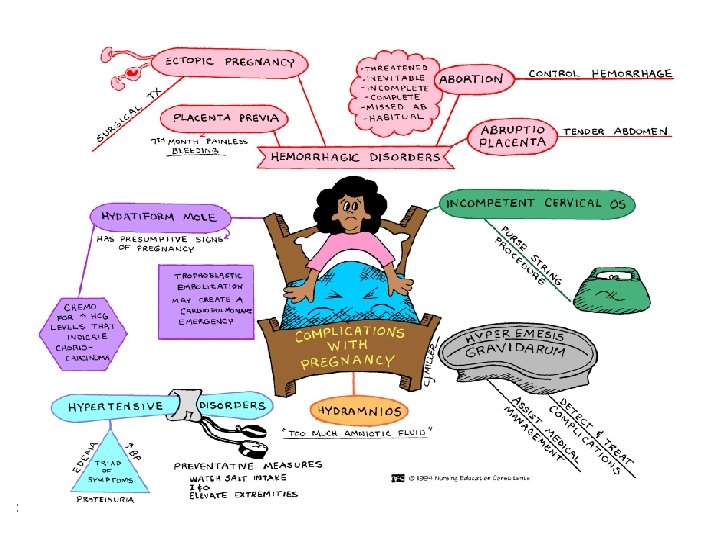 ECTOPIC PREGNANCY
SURGICAL TX
PLACENTA PREVIA
7TH MONTH PAINLESS
BLEEDING
-THREATENED
-INEVITABLE
-INCOMPLETE
-COMPLETE
-MISSED AB
-HABITUAL
ABORTION
CONTROL HEMORRHAGE
ABRUPTIO
PLACENTA
TENDER ABDOMEN
HEMORRHAGIC DISORDERS
HYDATIFORM MOLE
HAS PRESUMPTIVE SIGNS
OF PREGNANCY
TROPHOBLASTIC
EMBOLIZATION
MAY CREATE A
CARDIOPULMONARY
EMERGENCY
CHEMO
FOR ↑ HCG
LEVELS THAT
INDICATE
CHORIO-
CARCINOMA
INCOMPETENT CERVICAL OS
PURSE STRING
PROCEDURE
COMPLICATIONS
WITH
PREGNANCY
CJMILLER
HYPEREMESIS
GRAVIDARUM
ASSIST MEDICAL
MANAGEMENT
DETECT & TREAT
COMPLICATIONS
HYPERTENSIVE DISORDERS
EDEMA
↑BP
TRIAD
OF
SYMPTOMS
PROTEINURIA
PREVENTATIVE MEASURES
WATCH SALT INTAKE
I&O
ELEVATE EXTREMITIES
HYDRAMNIOS
"TOO MUCH AMNIOTIC FLUID"
© 1994 Nursing Education Consultants